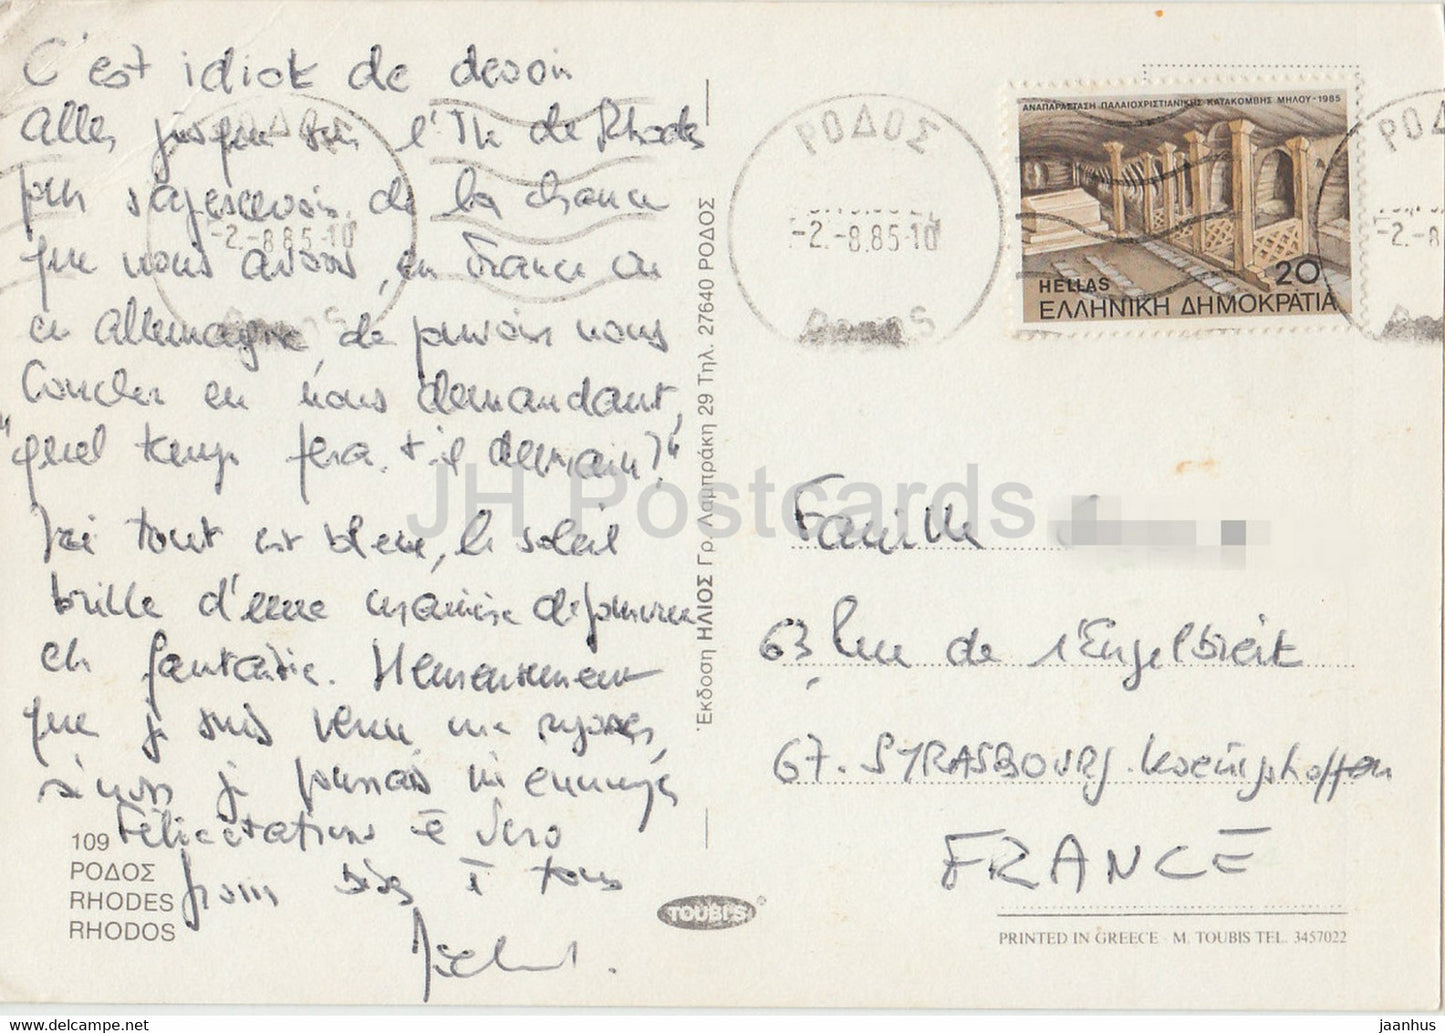 C'est idiot de devoir
aller jusque sur l'Ile de Rhodes
pour s'apercevoir de la chance
que nous avons, en France ou
en Allemagne, de pouvoir nous
coucher en nous demandant,
"quel temps fera-t-il demain?"
Ici tout est bleu, le soleil
brille d'une manière dépourvue
de fantaisie. Heureusement
que je suis venu me reposer,
sinon je
Félicitations à Vero
à tous
109
ΡΟΔΟΣ
RHODES
RHODOS
Έκδοση ΗΛΙΟΣ Γρ. Λαμπράκη 29 Τηλ. 27640 ΡΟΔΟΣ
TOUBI'S
ΡΟΔΟΣ
-2.-8.85-10
ΑΝΑΠΑΡΑΣΤΑΣΗ ΠΑΛΑΙΟΧΡΙΣΤΙΑΝΙΚΗΣ ΚΑΤΑΚΟΜΒΗΣ ΜΗΛΟΥ-1985
20
HELLAS
ΕΛΛΗΝΙΚΗ ΔΗΜΟΚΡΑΤΙΑ
Famille
63 Rue de l'Engelbreit
67. STRASBOURG. Koenigshoffen
FRANCE
PRINTED IN GREECE - M. TOUBIS TEL. 3457022
JH Postcards
delcampe.net
jaanhus